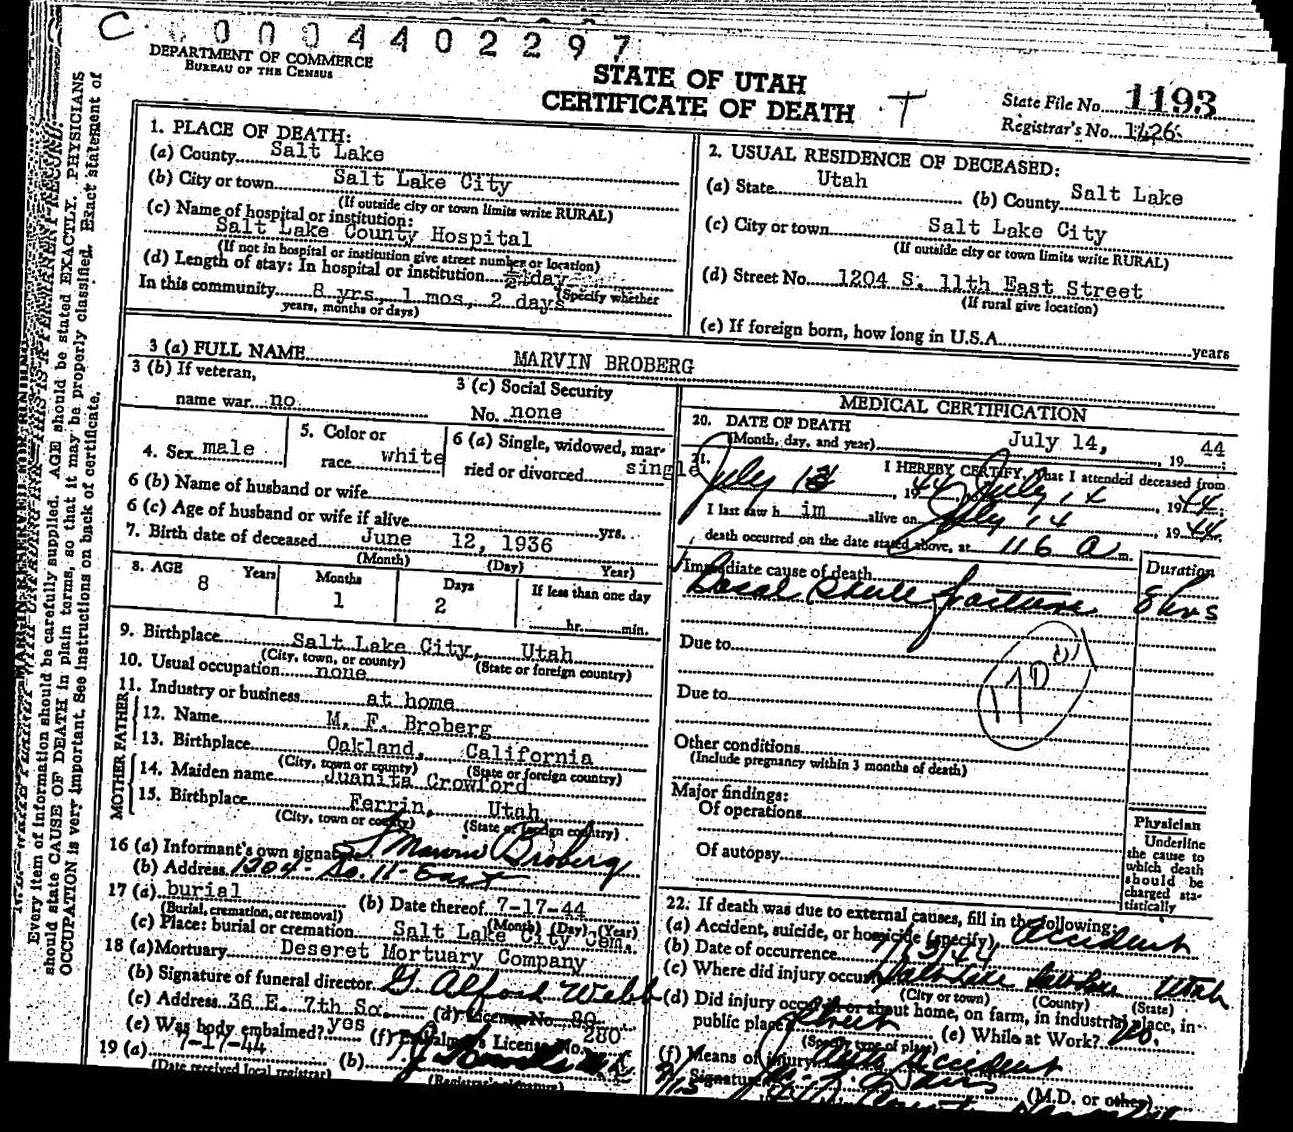 C 0004402297
DEPARTMENT OF COMMERCE
BUREAU OF THE CENSUS
STATE OF UTAH
CERTIFICATE OF DEATH T
State File No. 1193
Registrar's No. 1126
Every item of information should be carefully supplied. AGE should be stated EXACTLY. PHYSICIANS
should state CAUSE OF DEATH in plain terms, so that it may be properly classified. Exact statement of
OCCUPATION is very important. See instructions on back of certificate.
1. PLACE OF DEATH:
(a) County Salt Lake
(b) City or town Salt Lake City
(If outside city or town limits write RURAL)
(c) Name of hospital or institution:
Salt Lake County Hospital
(If not in hospital or institution give street number or location)
(d) Length of stay: In hospital or institution ½ day
(Specify whether
In this community 8 yrs, 1 mos, 2 days
years, months or days)
2. USUAL RESIDENCE OF DECEASED:
(a) State Utah (b) County Salt Lake
(c) City or town Salt Lake City
(If outside city or town limits write RURAL)
(d) Street No. 1204 S. 11th East Street
(If rural give location)
(e) If foreign born, how long in U.S.A. years
3 (a) FULL NAME MARVIN BROBERG
3 (b) If veteran,
name war no
3 (c) Social Security
No. none
4. Sex male
5. Color or
race white
6 (a) Single, widowed, mar-
ried or divorced single
6 (b) Name of husband or wife
6 (c) Age of husband or wife if alive yrs.
7. Birth date of deceased June 12, 1936
(Month) (Day) Year)
8. AGE Years Months Days If less than one day
8 1 2 hr. min.
9. Birthplace Salt Lake City, Utah
(City, town, or county) (State or foreign country)
10. Usual occupation none
11. Industry or business at home
FATHER
12. Name M. F. Broberg
13. Birthplace Oakland, California
(City, town or county) (State or foreign country)
MOTHER
14. Maiden name Juanita Crowford
15. Birthplace Ferrin, Utah
(City, town or county) (State or foreign country)
16 (a) Informant's own signature Marvin Broberg
(b) Address 1204 - So. 11 - East
17 (a) burial (b) Date thereof 7-17-44
(Burial, cremation, or removal) (Month) (Day) (Year)
(c) Place: burial or cremation Salt Lake City Cem.
18 (a) Mortuary Deseret Mortuary Company
(b) Signature of funeral director G. Alford Webb
(c) Address 36 E. 7th So. (d) License No. 80
(e) Was body embalmed? yes (f) Embalmer's License No. 280
19 (a) 7-17-44 (b)
(Date received local registrar) (Registrar's signature)
MEDICAL CERTIFICATION
20. DATE OF DEATH
(Month, day, and year) July 14, 1944
21. I HEREBY CERTIFY, That I attended deceased from
July 13, 1944 July 14, 1944;
I last saw him alive on July 14, 1944
death occurred on the date stated above, at 116 a m.
Immediate cause of death Duration
Basal Skull fracture 8 hrs
Due to
170
Due to
Other conditions
(Include pregnancy within 3 months of death)
Major findings:
Of operations
Of autopsy
Physician
Underline
the cause to
which death
should be
charged sta-
tistically
22. If death was due to external causes, fill in the following:
(a) Accident, suicide, or homicide (specify) Accident
(b) Date of occurrence 7/13/44
(c) Where did injury occur? Salt Lake Salt Lake Utah
(City or town) (County) (State)
(d) Did injury occur in or about home, on farm, in industrial place, in
public place? Street (e) While at Work? no.
(Specify type of place)
(f) Means of injury Auto Accident
Signature
(M.D. or other)